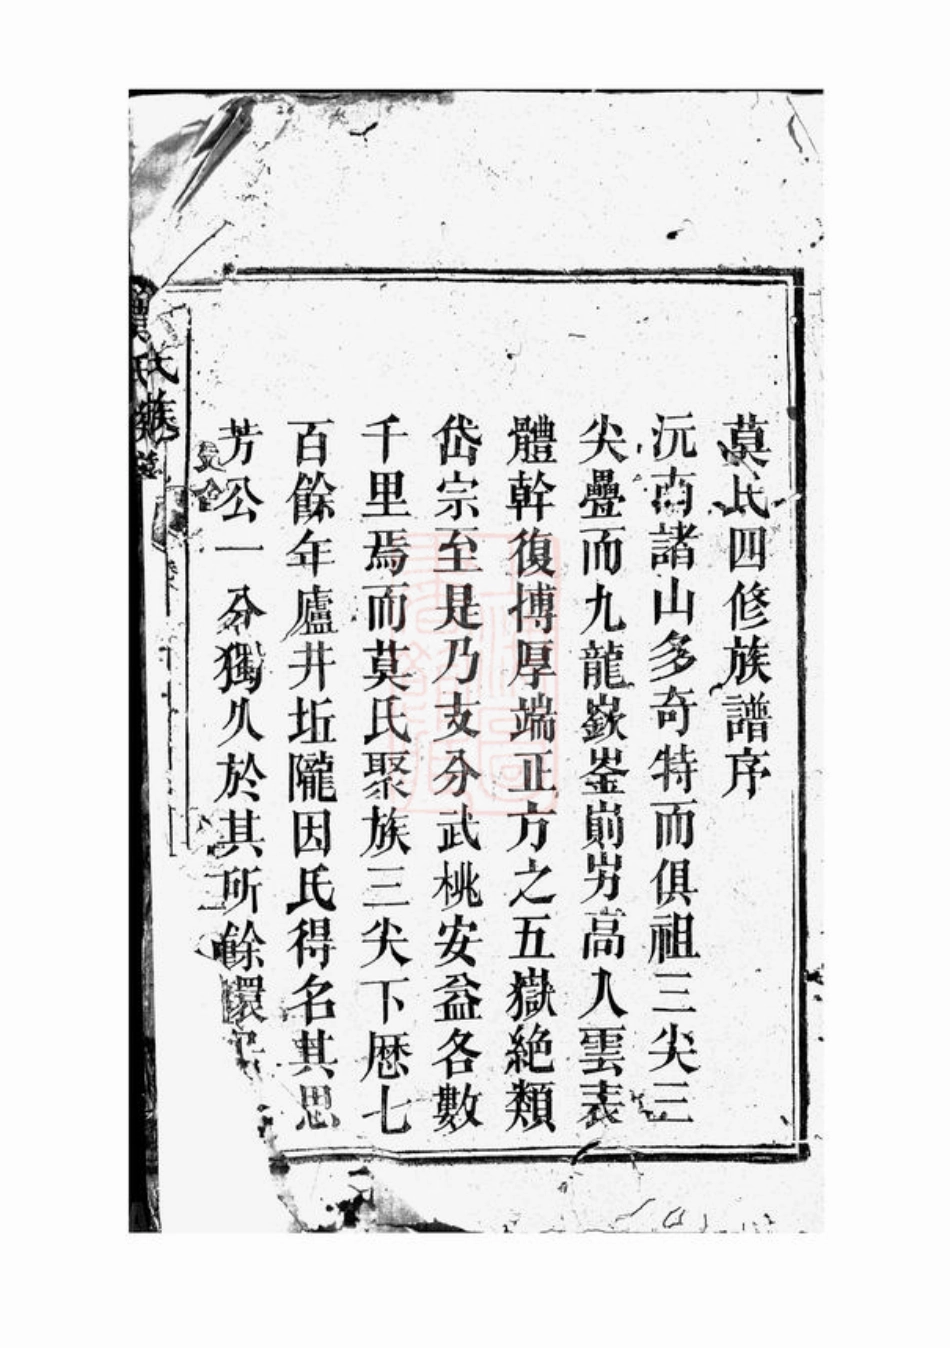 莫氏四修族譜序
沅南諸山多奇特而俱祖三尖三
尖疊而九龍嶽崟崱屴高入雲表
體幹復摶厚端正方之五嶽絶類
岱宗至是乃支分武桃安益各數
千里焉而莫氏聚族三尖下厯七
百餘年廬井坵隴因氏得名其思
芳公一分獨久於其所餘環
氏族